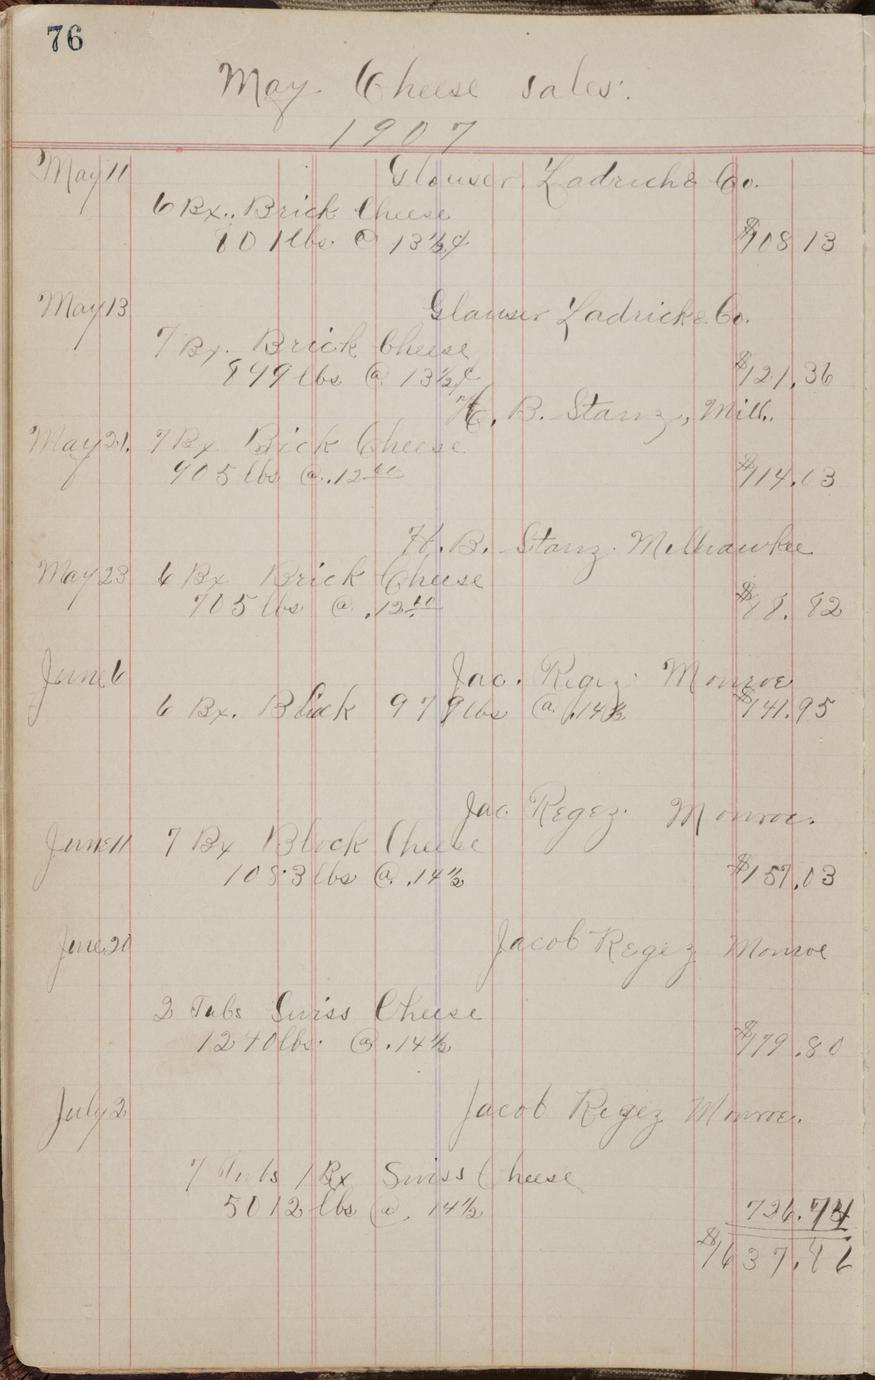 76
May Cheese sales.
1907
May 11 Glauser, Ladrich & Co.
6 Bx. Brick Cheese
801 lbs. @ 13½¢ $108 13
May 13 Glauser Ladrick & Co.
7 Bx. Brick Cheese
899 lbs @ 13½¢ $121.36
H. B. Stanz, Mill.
May 21. 7 Bx Bick Cheese
905 lbs @ .12 60 $114.03
H. B. Stanz. Milwaukee
May 23 6 Bx Brick Cheese
705 lbs @ .12 60 $88.82
June 6 Jac. Regez. Monroe
6 Bx. Block 979 lbs @ .14½ $141.95
Jac Regez. Monroe.
June 11 7 Bx Block Cheese
1083 lbs @ .14½ $157.03
June 20 Jacob Regez Monroe
2 Tubs Swiss Cheese
1240 lbs. @ .14½ $179.80
July 2 Jacob Regez Monroe.
7 Tubs 1 Bx Swiss Cheese
5012 lbs @ 14½ 726.74
$1637.86